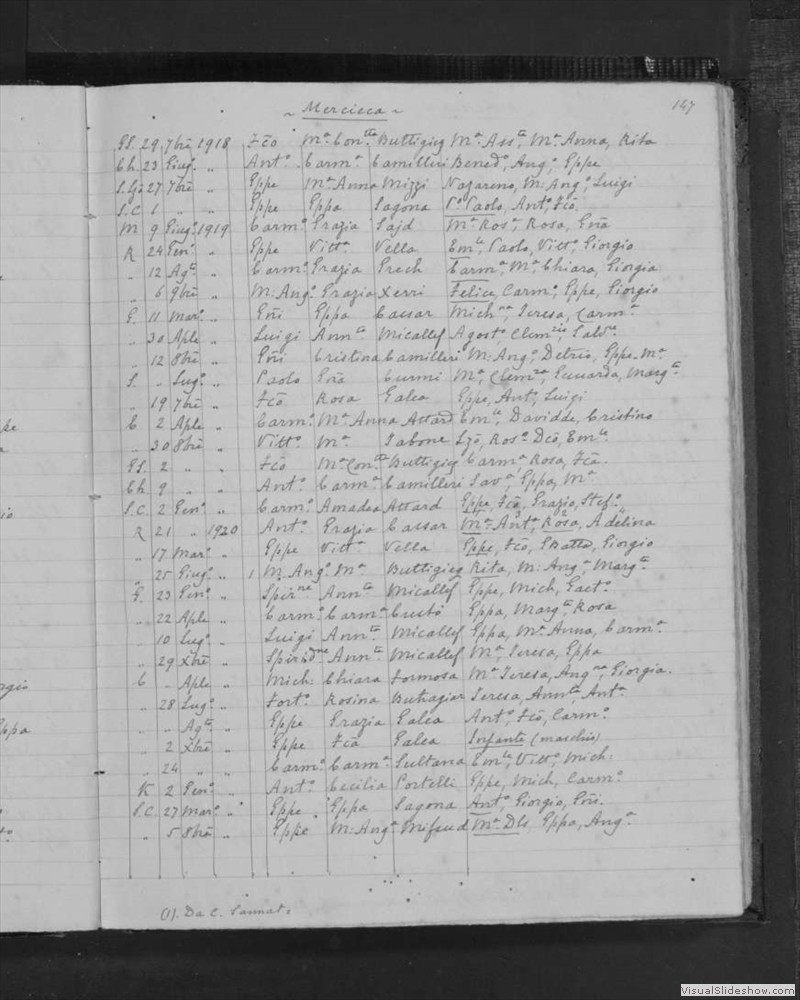 147
~ Mercieca ~
GS. 29 7bre 1918 Fco Ma. Contta Buttigieg Ma. Assta, Ma. Anna, Rita
Ch. 23 Giug. „ Anto. Carma. Camilleri Benedo, Ango, Eppe
S.Go 27 7bre „ Eppe Ma. Anna Mizzi Nazareno, M. Ango, Luigi
S.C. 1 „ „ Eppe Eppa Sagona Paolo, Anto, Fco,
M 9 Giugo 1919 Carmo. Grazia Sajd Ma. Rosa, Rosa, Gna
R 24 Geno. „ Eppe Vitta. Vella Emle, Paolo, Vitto, Giorgio
„ 12 Agto. „ Carmo. Grazia Grech Carma, Ma. Chiara, Giorgia
„ 6 9bre „ M. Ango. Grazia Xerri Felice, Carmo, Eppe, Giorgio
G. 11 Mar. „ Gni Eppa Cassar Michna, Teresa, Carma.
„ 30 Aple „ Luigi Annta Micallef Agost, Clem, Salv
„ 12 8bre „ Gni Cristina Camilleri M. Ango, Eppe Ma
S. „ Lugo. „ Paolo Gna Curmi Ma, Clem, Marg
„ 19 7bre „ Fco Rosa Galea Eppe, Anto, Luigi
C 2 Aple „ Carmo. Ma. Anna Attard Emle, Davidde, Cristino
„ 30 8bre „ Vitto. Ma. Sabone Lzo, Rosa. Dco, Emle
GS. 2 „ „ Fco Ma. Contta Buttigieg Carma. Rosa, Fca.
Ch. 9 „ „ Anto. Carma. Camilleri Sava, Eppa, Ma
S.C. 2 Geno. „ Carmo. Amadea Attard Eppe, Fco, Grazio, Stef
R 21 „ 1920 Anto. Grazia Cassar Ma. Anta, Rosa, Adelina
„ 17 Mar. „ Eppe Vitta. Vella Eppe, Fco, Gbatta, Giorgio
„ 25 Giugo. „ 1 M. Ango. Ma. Buttigieg Rita, M. Anga. Margta
G. 23 Geno. „ Spirne Annta Micallef Eppe, Mich, Gaeto
„ 22 Aple „ Carmo. Carma. Custò Eppa, Margta Rosa
„ 10 Lugo. „ Luigi Annta. Micallef Eppa, Ma. Anna, Carma.
„ 29 Xbre „ Spiridne Annta Micallef Ma, Teresa, Eppa
C „ Aple „ Mich. Chiara Formosa Ma. Teresa, Angna, Giorgia.
„ 28 Lugo. „ Forto. Rosina Buhagiar Teresa, Annta, Anta
„ „ Agto. „ Eppe Grazia Galea Anto, Fco, Carmo.
„ 2 Xbre „ Eppe Fca Galea Infante (maschio)
„ 24 „ „ Carmo. Carma. Sultana Emle, Vitto, Mich.
K 2 Geno. „ Anto. Cecilia Portelli Eppe, Mich, Carmo.
S.C. 27 Mar. „ Eppe Eppa Sagona Anto, Giorgio, Gni.
„ 5 8bre „ Eppe M. Anga. Mifsud Ma. Dls, Eppa, Anga
(1). Da C. Sannat.
VisualSlideshow.com